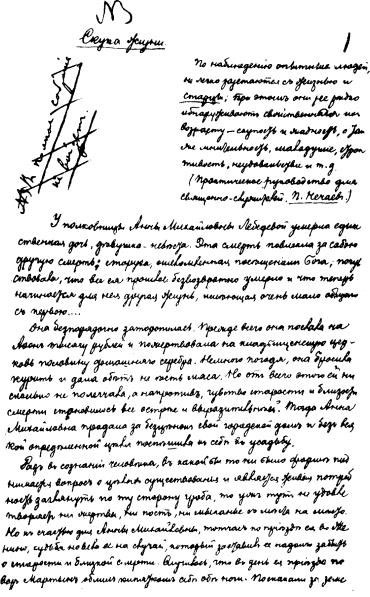 NB
Скука жизни.
1
По наблюдению опытных людей,
не легко расстаются съ жизнью и
старцы; при этомъ они не рѣдко
обнаруживаютъ свойственныя ихъ
возрасту — скупость и жадность, а так
же мнительность, малодушіе, строп
тивость, неудовольствіе и т. д
(Практическое руководство для
священно-служителей. П. Нечаевъ)
У полковницы Анны Михайловны Лебедевой умерла един
ственная дочь, дѣвушка-невѣста. Эта смерть повлекла за собою
другую смерть: старуха, ошеломленная посѣщеніемъ Бога, почув
ствовала, что все ея прошлое безвозвратно умерло и что теперь
начинается для нея другая жизнь, имѣющая очень мало общаго
съ первою....
Она безпорядочно заторопилась. Прежде всего она послала на
Аѳонъ тысячу рублей и пожертвовала на кладбищенскую цер
ковь половину домашняго серебра. Немного погодя, она бросила
курить и дала обѣтъ не ѣсть мяса. Но отъ всего этого ей ни
сколько не полегчало, а напротивъ, чувство старости и близости
смерти становилось все острѣе и выразительнѣй. Тогда Анна
Михайловна продала за безцѣнокъ свой городской домъ и безъ вся
кой опредѣленной цѣли поспѣшила къ себѣ въ усадьбу.
Разъ въ сознаніи человѣка, въ какой бы то ни было формѣ, под
нимается вопросъ о цѣляхъ существованія и является живая потреб
ность заглянуть по ту сторону гроба, то ужъ тутъ не удовле
творяютъ ни жертва, ни постъ, ни мыканье съ мѣста на мѣсто.
Но къ счастью для Анны Михайловны, тотчасъ по пріѣздѣ ея въ Же
нино, судьба навела ее на случай, который заставилъ ее надолго забыть
о старости и близкой смерти. Случилось, что въ день ея пріѣзда по
варъ Мартынъ облилъ кипяткомъ себѣ обѣ ноги. Поскакали за земс